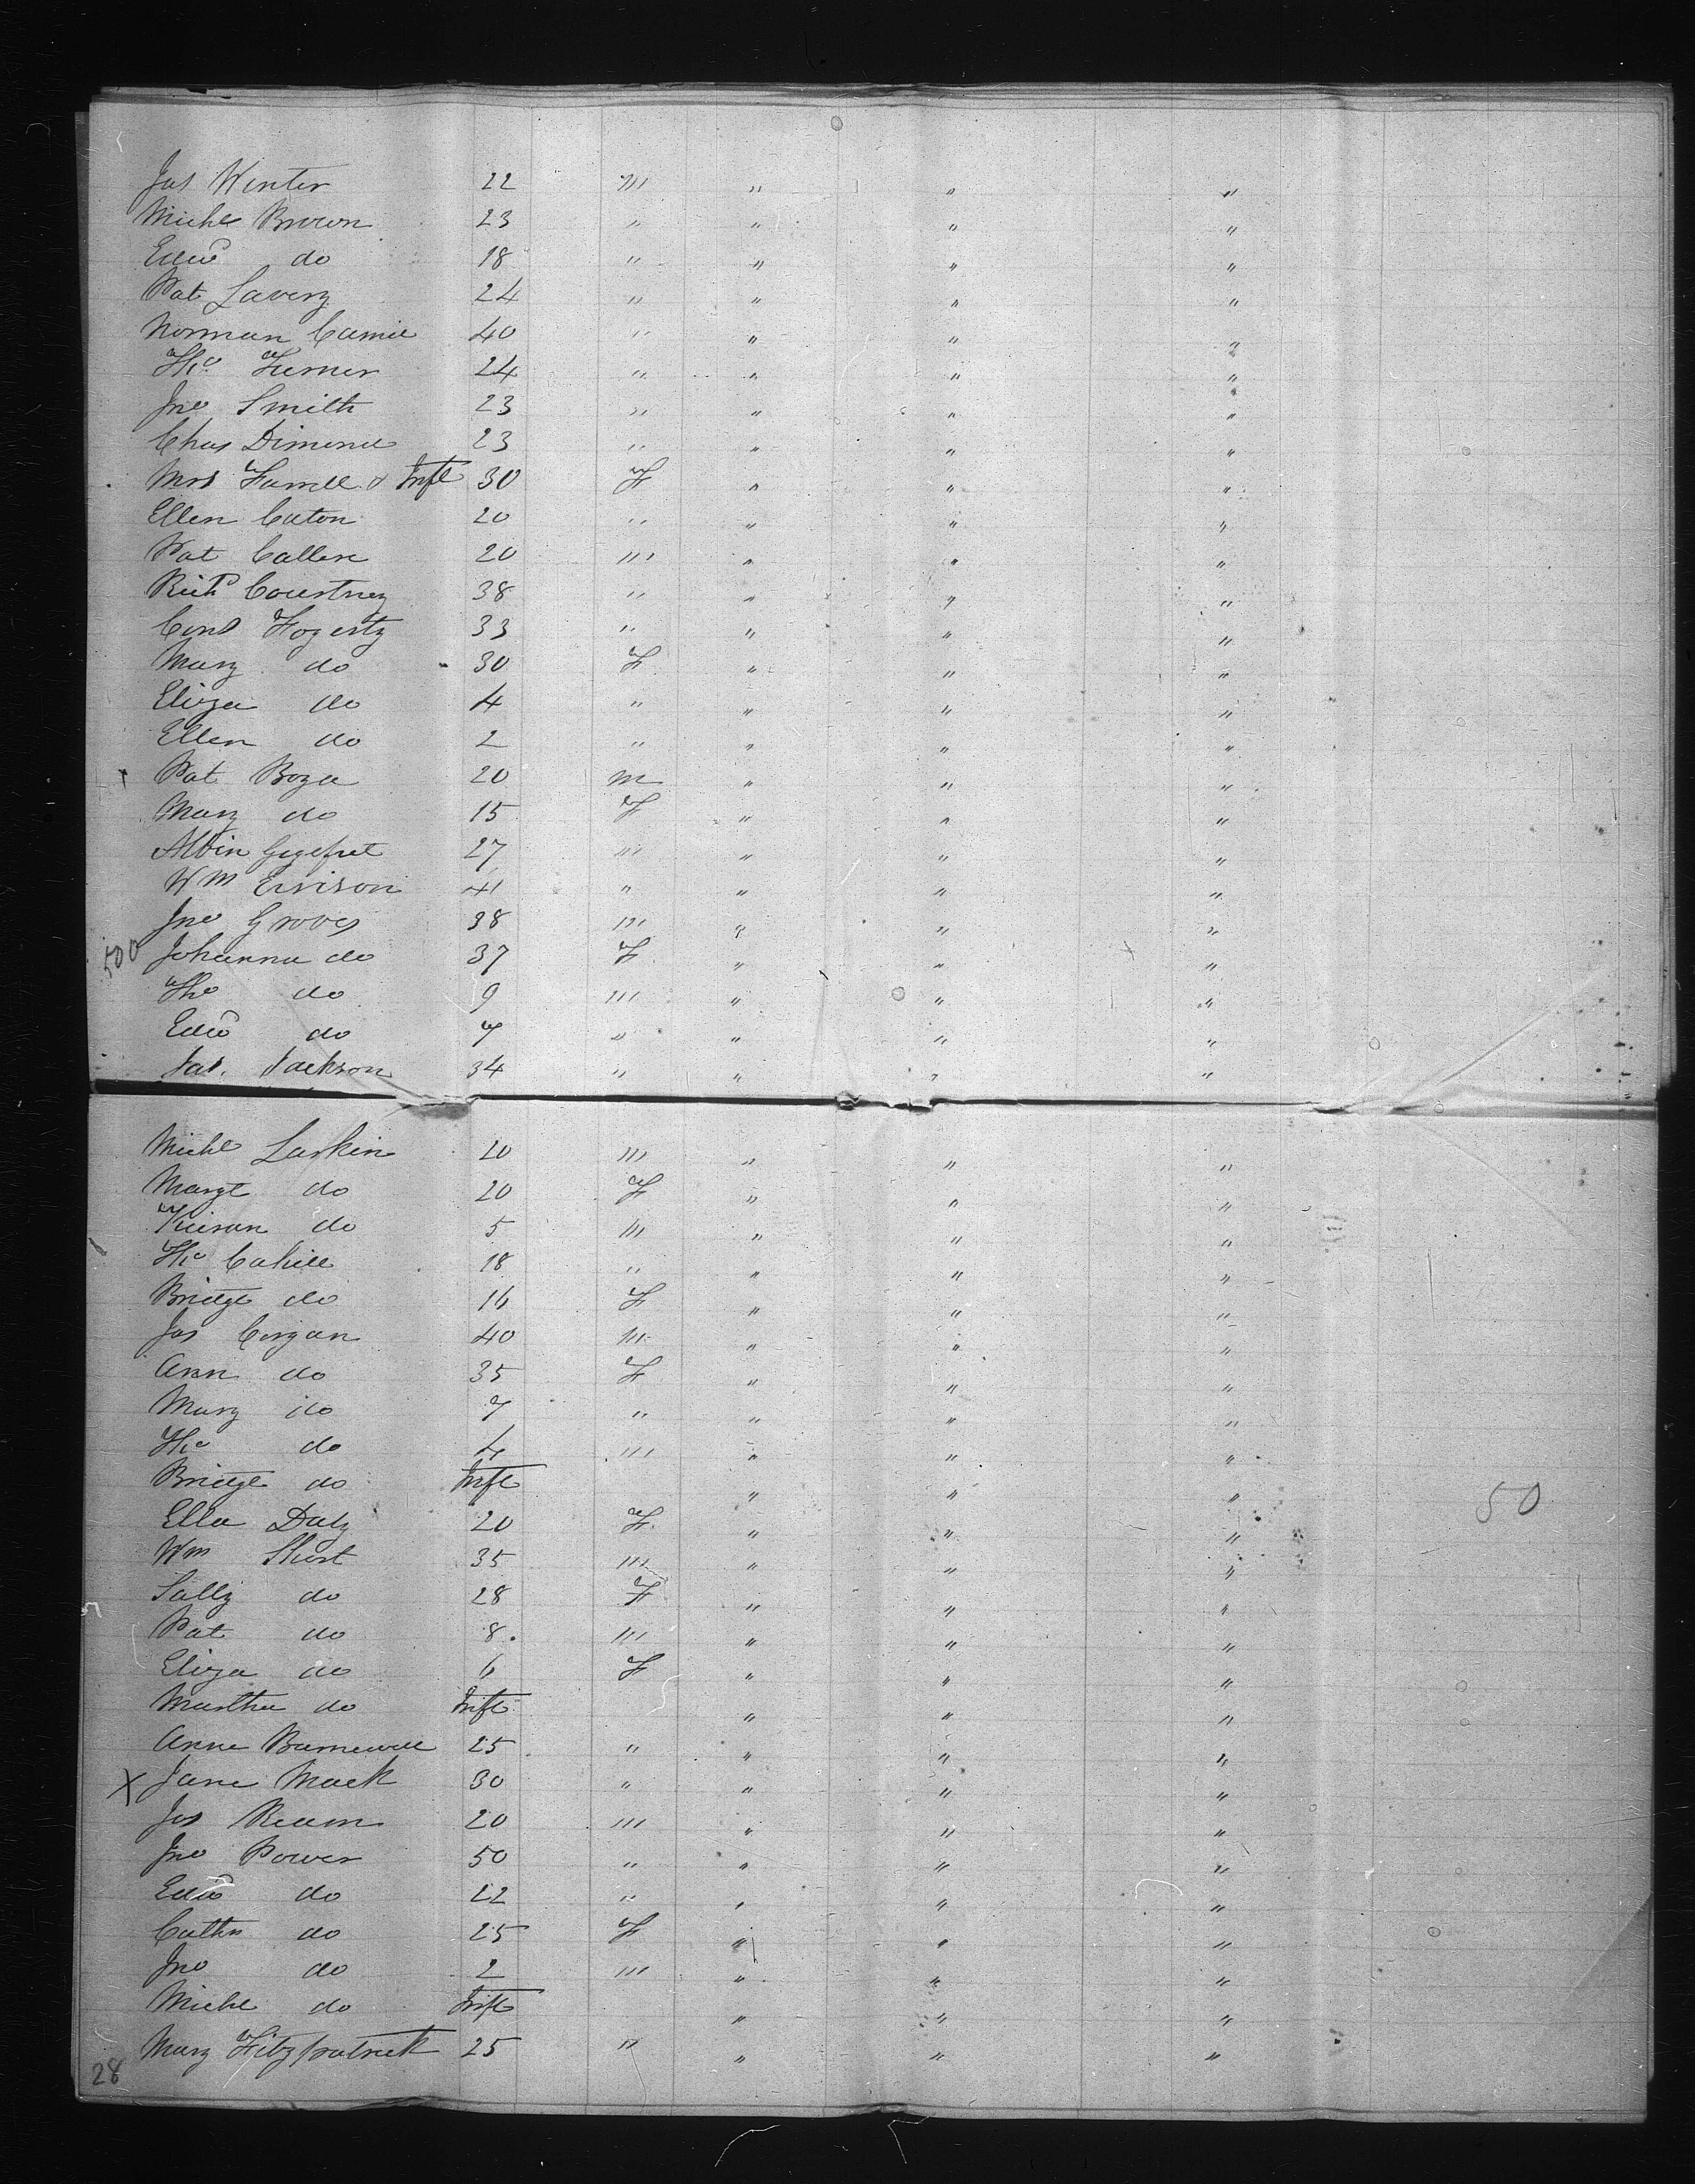 Jas Winter 22 m " " "
Michl Brown 23 " " " "
Edwd do 18 " " " "
Pat Lavery 24 " " " "
Norman 40 " " " "
Tho Turner 24 " " " "
Jno Smith 23 " " " "
Chas Dimond 23 " " " "
Mrs Farrell & Inft 30 F " " "
Ellen Caton 20 " " " "
Pat Cullen 20 m " " "
Richd Courtney 38 " " " "
Cors Fogerty 33 " " " "
Mary do 30 F " " "
Eliza do 4 " " " "
Ellen do 2 " " " "
Pat 20 m " " "
Mary do 15 F " " "
Albin 27 m " " "
Wm 41 " " " "
Jno Groves 38 m " " "
500 Johanna do 37 F " " "
Tho do 9 m " " "
Edwd do 7 " " " "
Jas. Jackson 34 " " " "
Michl Larkin 20 m " " "
Margt do 20 F " " "
Kieran do 5 m " " "
Tho Cahill 18 " " " "
Bridgt do 16 F " " "
Jas Corgan 40 m " " "
Ann do 35 F " " "
Mary do 7 " " " "
Tho do 4 m " " "
Bridgt do Inft " " "
50
Ella Daly 20 F " " "
Wm Short 35 m " " "
Sally do 28 F " " "
Pat do 8 m " " "
Eliza do 6 F " " "
Martha do Inft " " "
Anne Barnewell 25 " " " "
X Jane Mack 30 " " " "
Jas 20 m " " "
Jno Power 50 " " " "
Edwd do 22 " " " "
Cathn do 25 F " " "
Jno do 2 m " " "
Michl do Inft " " "
Mary Fitzpatrick 25 " " " "
28